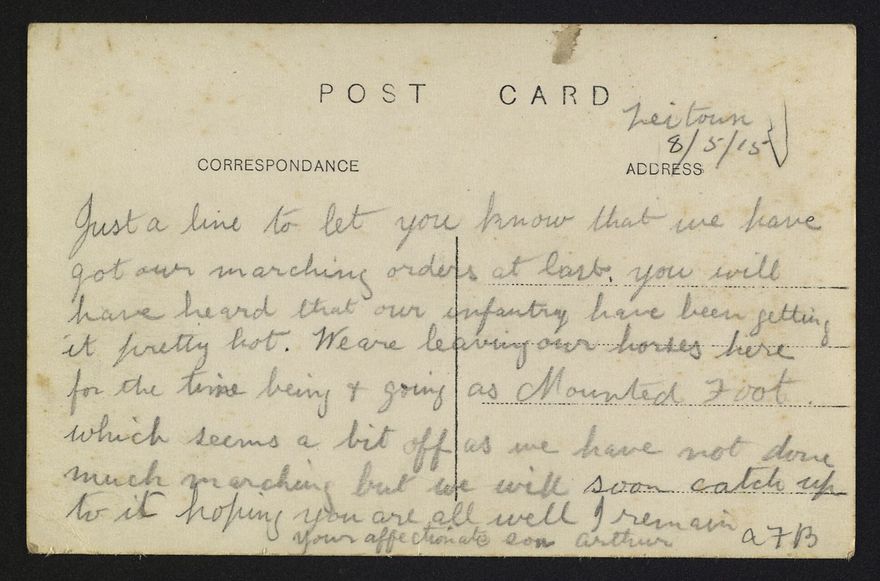 POST CARD
Zeitoun
8/5/15
CORRESPONDANCE
ADDRESS
Just a line to let you know that we have
got our marching orders at last. you will
have heard that our infantry have been getting
it pretty hot. We are leaving our horses here
for the time being & going as Mounted Foot.
which seems a bit off as we have not done
much marching but we will soon catch up
to it hoping you are all well I remain
your affectionate son Arthur A F B